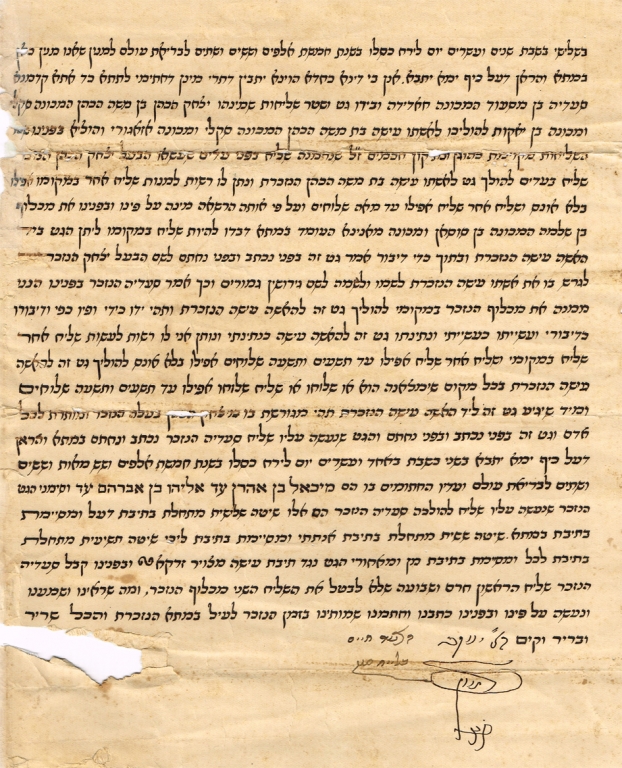 בשלישי בשבת שנים ועשרים יום לירח כסלו בשנת חמשת אלפים וששים ושתים לבריאת עולם למנין שאנו מנין כאן
במתא והראן דעל כיף ימא יתבא. אנן בי דינא כחדא הוינא יתבין דחרי מינן דחתימי לתתא כד אתא קדמנא
סעדיה בן מסעוד המכונה חאדידה ובידו גט ושטר שליחות שמינהו יצחק הכהן בן משה הכהן המכונה סקלי
ומכונה בן יאקות להוליכו לאשתו עישה בת משה הכהן המכונה סקלי ומכונה אזאגורי והוליא בפנינו
השליחות מקויימת כהוגן וכתקון חכמים ז"ל שנתמנה שליח בפני עדים שעשאו הבעל יצחק הכהן הנזכר
שליח בעדים להוליך גט לאשתו עישה בת משה הכהן הנזכרת ונתן לו רשות למנות שליח אחר במקומו אפילו
בלא אונס ושליח אחר שליח אפילו עד מאה שלוחים ועל פי אותה הרשאה מינה על פינו ובפנינו את מכלוף
בן שלמה המכונה בן סוסאן ומכונה מאנינא העומד במתא דבדו להיות שליח במקומו ליתן הגט ביד
האשה עישה הנזכרת ובתוך כדי דיבור אמר גט זה בפני נכתב ובפני נחתם לשם הבעל יצחק הנזכר
לגרש בו את אשתו עישה הנזכרת לשמו ולשמה לשם גירושין גמורים וכך אמר סעדיה הנזכר בפנינו הנני
ממנה את מכלוף הנזכר במקומי להוליך גט זה להאשה עישה הנזכרת ותהי ידו כידי ופיו כפי ודיבורו
כדיבורי ועשייתו כעשייתי ונתינתו גט זה להאשה עישה כנתינתי ונותן אני לו רשות לעשות שליח אחר
שליח במקומי ושליח אחר שליח אפילו עד תשעים ותשעה שלוחים אפילו בלא אונס להוליך גט זה להאשה
עישה הנזכרת בכל מקום שימלאנה הוא או שלוחו או שליח שלוחו אפילו עד תשעים ותשעה שלוחים
ומיד שיגיע גט זה ליד האשה עישה הנזכרת תהי מגורשת בו מיצחק הכהן בעלה הנזכר ומותרת לכל
אדם וגט זה בפני נכתב ובפני נחתם והגט שנעשה עליו שליח סעדיה הנזכר נכתב ונחתם במתא והראן
דעל כיף ימא יתבא בשני בשבת באחד ועשרים יום לירח כסלו בשנת חמשת אלפים ושש מאות וששים
ושתים לבריאת עולם ועדיו החתומים בו הם מיכאל בן אהרן עד אליהו בן אברהם עד וסימני הגט
הנזכר שנעשה עליו שליח להולכה סעדיה הנזכר הם אלו שיטה שלשית מתחלת בתיבת דעל ומסיימת
בתיבת במתא. שיטה ששית מתחלת בתיבת אנתתי ומסיימת בתיבת ליכי שיטה תשיעית מתחלת
בתיבת לכל ומסיימת בתיבת מן ומאחורי הגט נגד תיבת עישה מצויר זרקא ובפנינו קבל סעדיה
הנזכר שליח הראשון חרם ושבועה שלא לבטל את השליח השני מכלוף הנזכר, ומה שראינו ושמענו
ונעשה על פינו ובפנינו כתבנו וחתמנו שמותינו בזמן הנזכר לעיל במתא הנזכרת והכל שריר
ובריר וקים